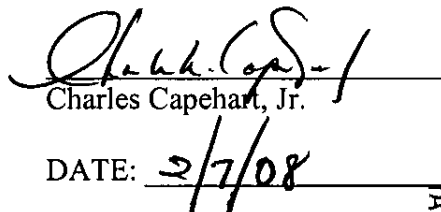 Charles Capehart, Jr.
DATE: 2/7/08